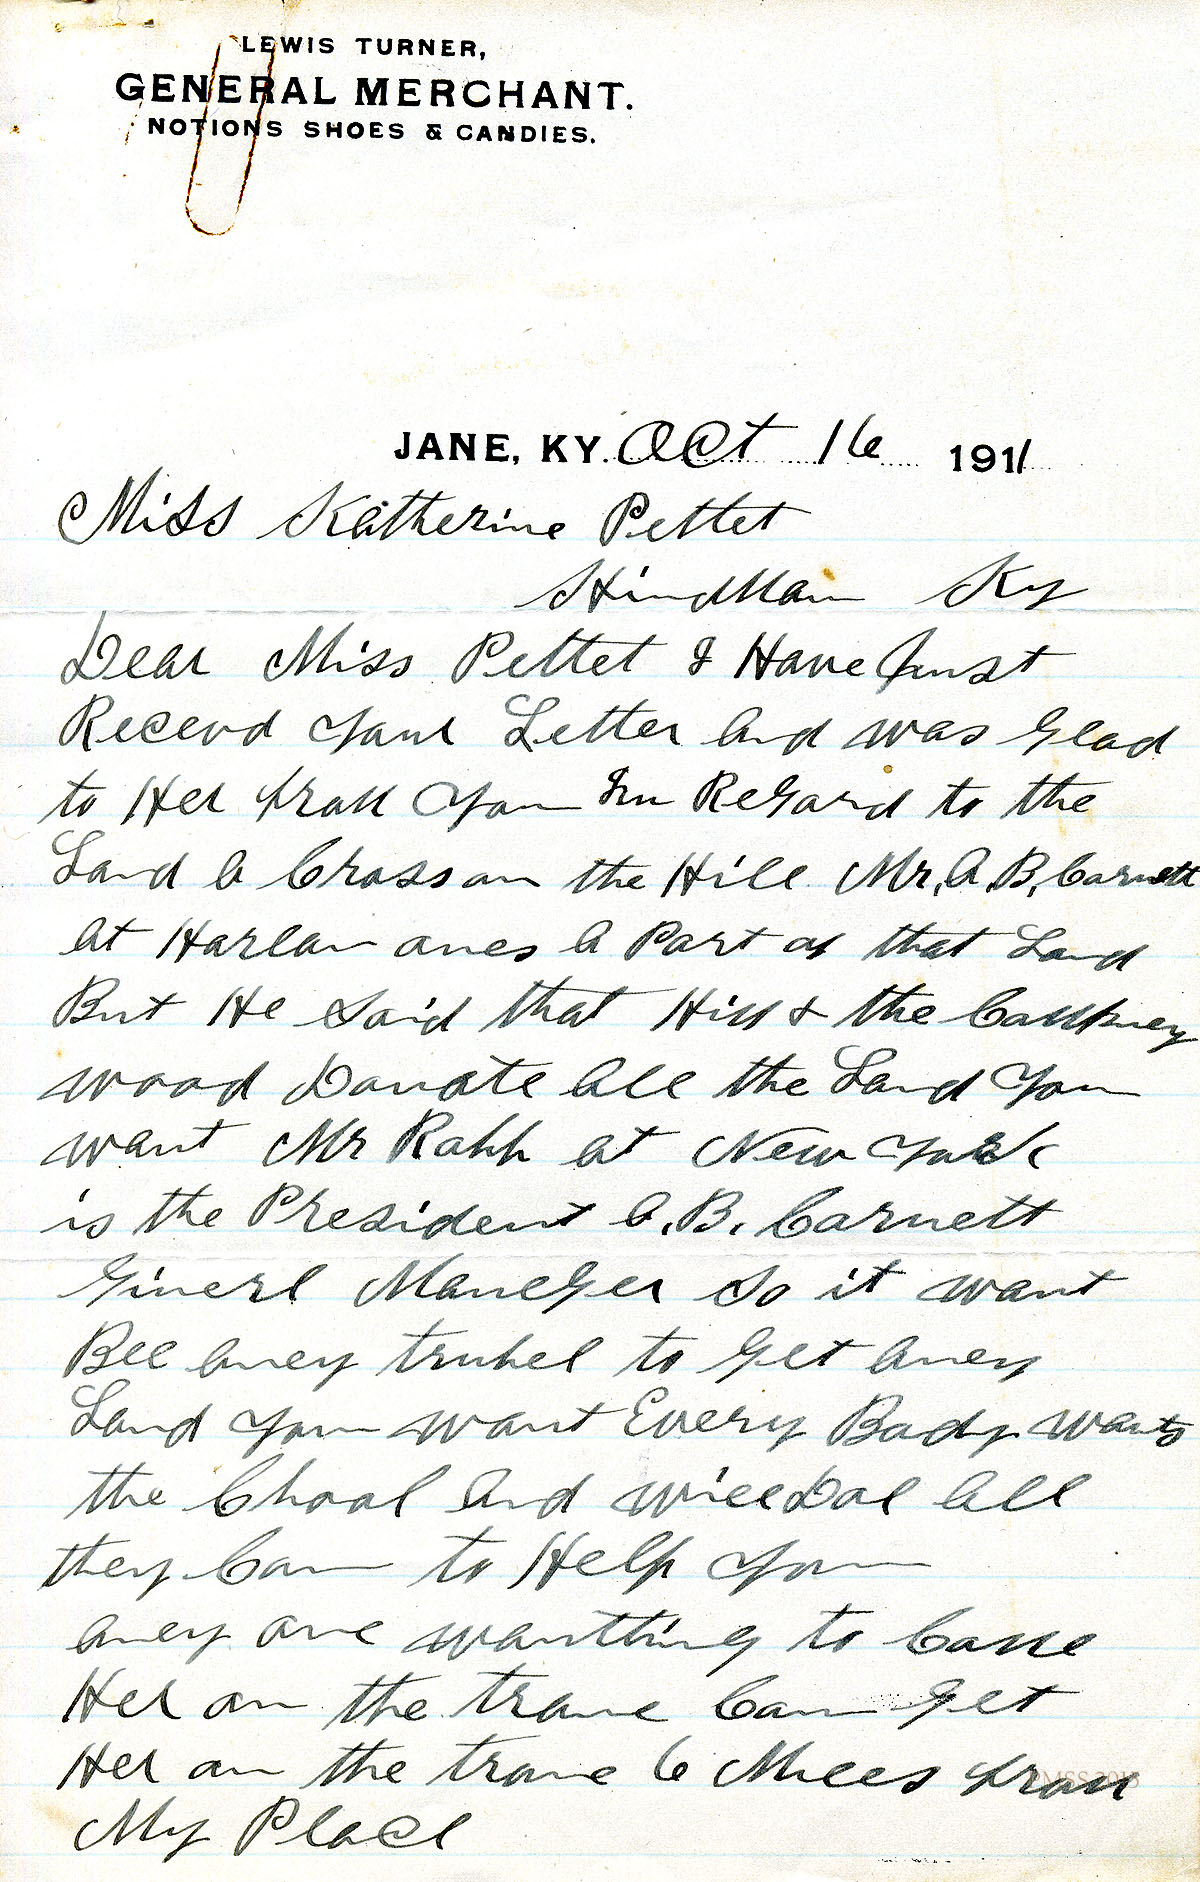 LEWIS TURNER,
GENERAL MERCHANT.
NOTIONS SHOES & CANDIES.
JANE, KY. Oct 16 1911
Miss Katherine Pettet
Hindman Ky
Dear Miss Pettet I Have Just
Recevd your Letter And was Glad
to Her from you In Regard to the
Land A Cross on the Hill Mr. A. B. Carnett
at Harlan ones A Part of that Land
But He said that Him & the Compney
wood Donate All the Land you
want Mr Rahh at New York
is the President A. B. Carnett
Ginerl Maneger So it want
Bee Aney trubel to Get Aney
Land you want Every Body wants
the Chool And will Dol All
they Can to Help you
Aney one wantting to Come
Her on the trane Can Get
Her on the trane 6 Miles from
My Place
PMSS 2016